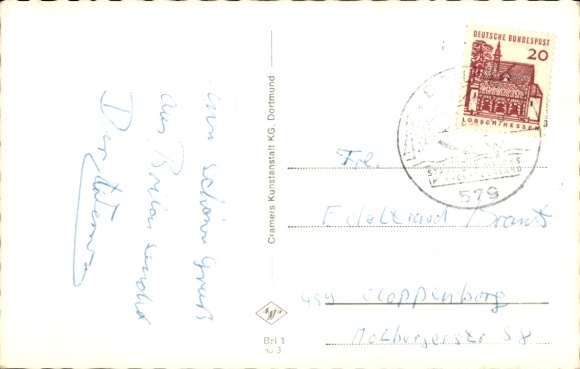 einen schönen Gruß
aus Brilon sendet
Dein
Cramers Kunstanstalt KG. Dortmund
Bri 1
DEUTSCHE BUNDESPOST
20
LORSCH/HESSEN
579
Frl.
Edeltraud Brandt
459 Cloppenburg
Molbergerstr 58